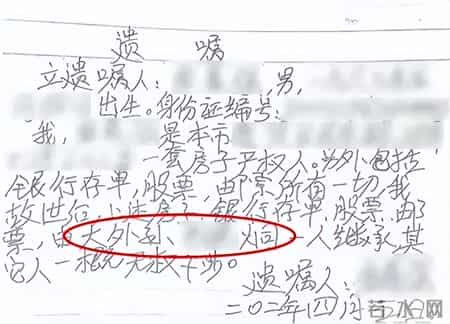 遗 嘱
立遗嘱人: ,男,
出生。身份证编号:
我, 是本市
一套房子产权人。另外包括
银行存单,股票,邮票所有一切,我
故世后,上述房子,银行存单,股票,邮
票,由大外孙 一人继承,其
它人一概无权干涉。
遗嘱人:
二〇二年四月